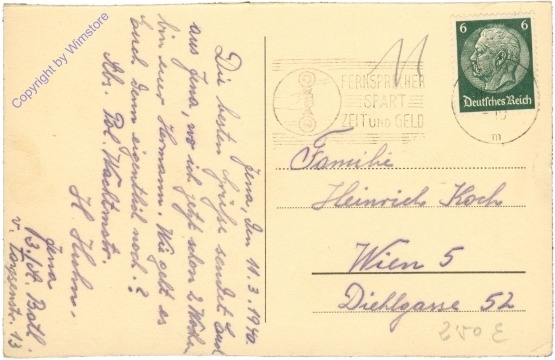 Jena, den 11.3.1940.
Die besten Grüße sendet Euch
aus Jena, wo ich jetzt schon 2 Wochen
bin euer Hermann. Wie geht es
euch denn eigentlich noch?
Abs. Pol. Wachtmstr.
H. Huhn.
Jena
13
6 6
Deutsches Reich
FERNSPRECHER
SPART
ZEIT UND GELD
m
Familie
Heinrich Koch
Wien 5
Diehlgasse 52
Copyright by Wimstore